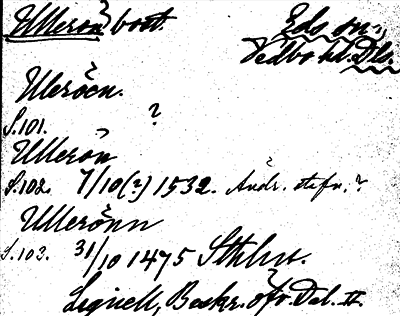 Ullerön bost. Eds sn.,
Vedbo hd. Dls.
Uleröen.
S.101. ?
Ullerön
S.102. 7/10(?) 1532. Andr. ?
Ullerönn
S.103. 31/10 1475 Sthlm.
Lignell, Beskr. öfr. Dal. II.